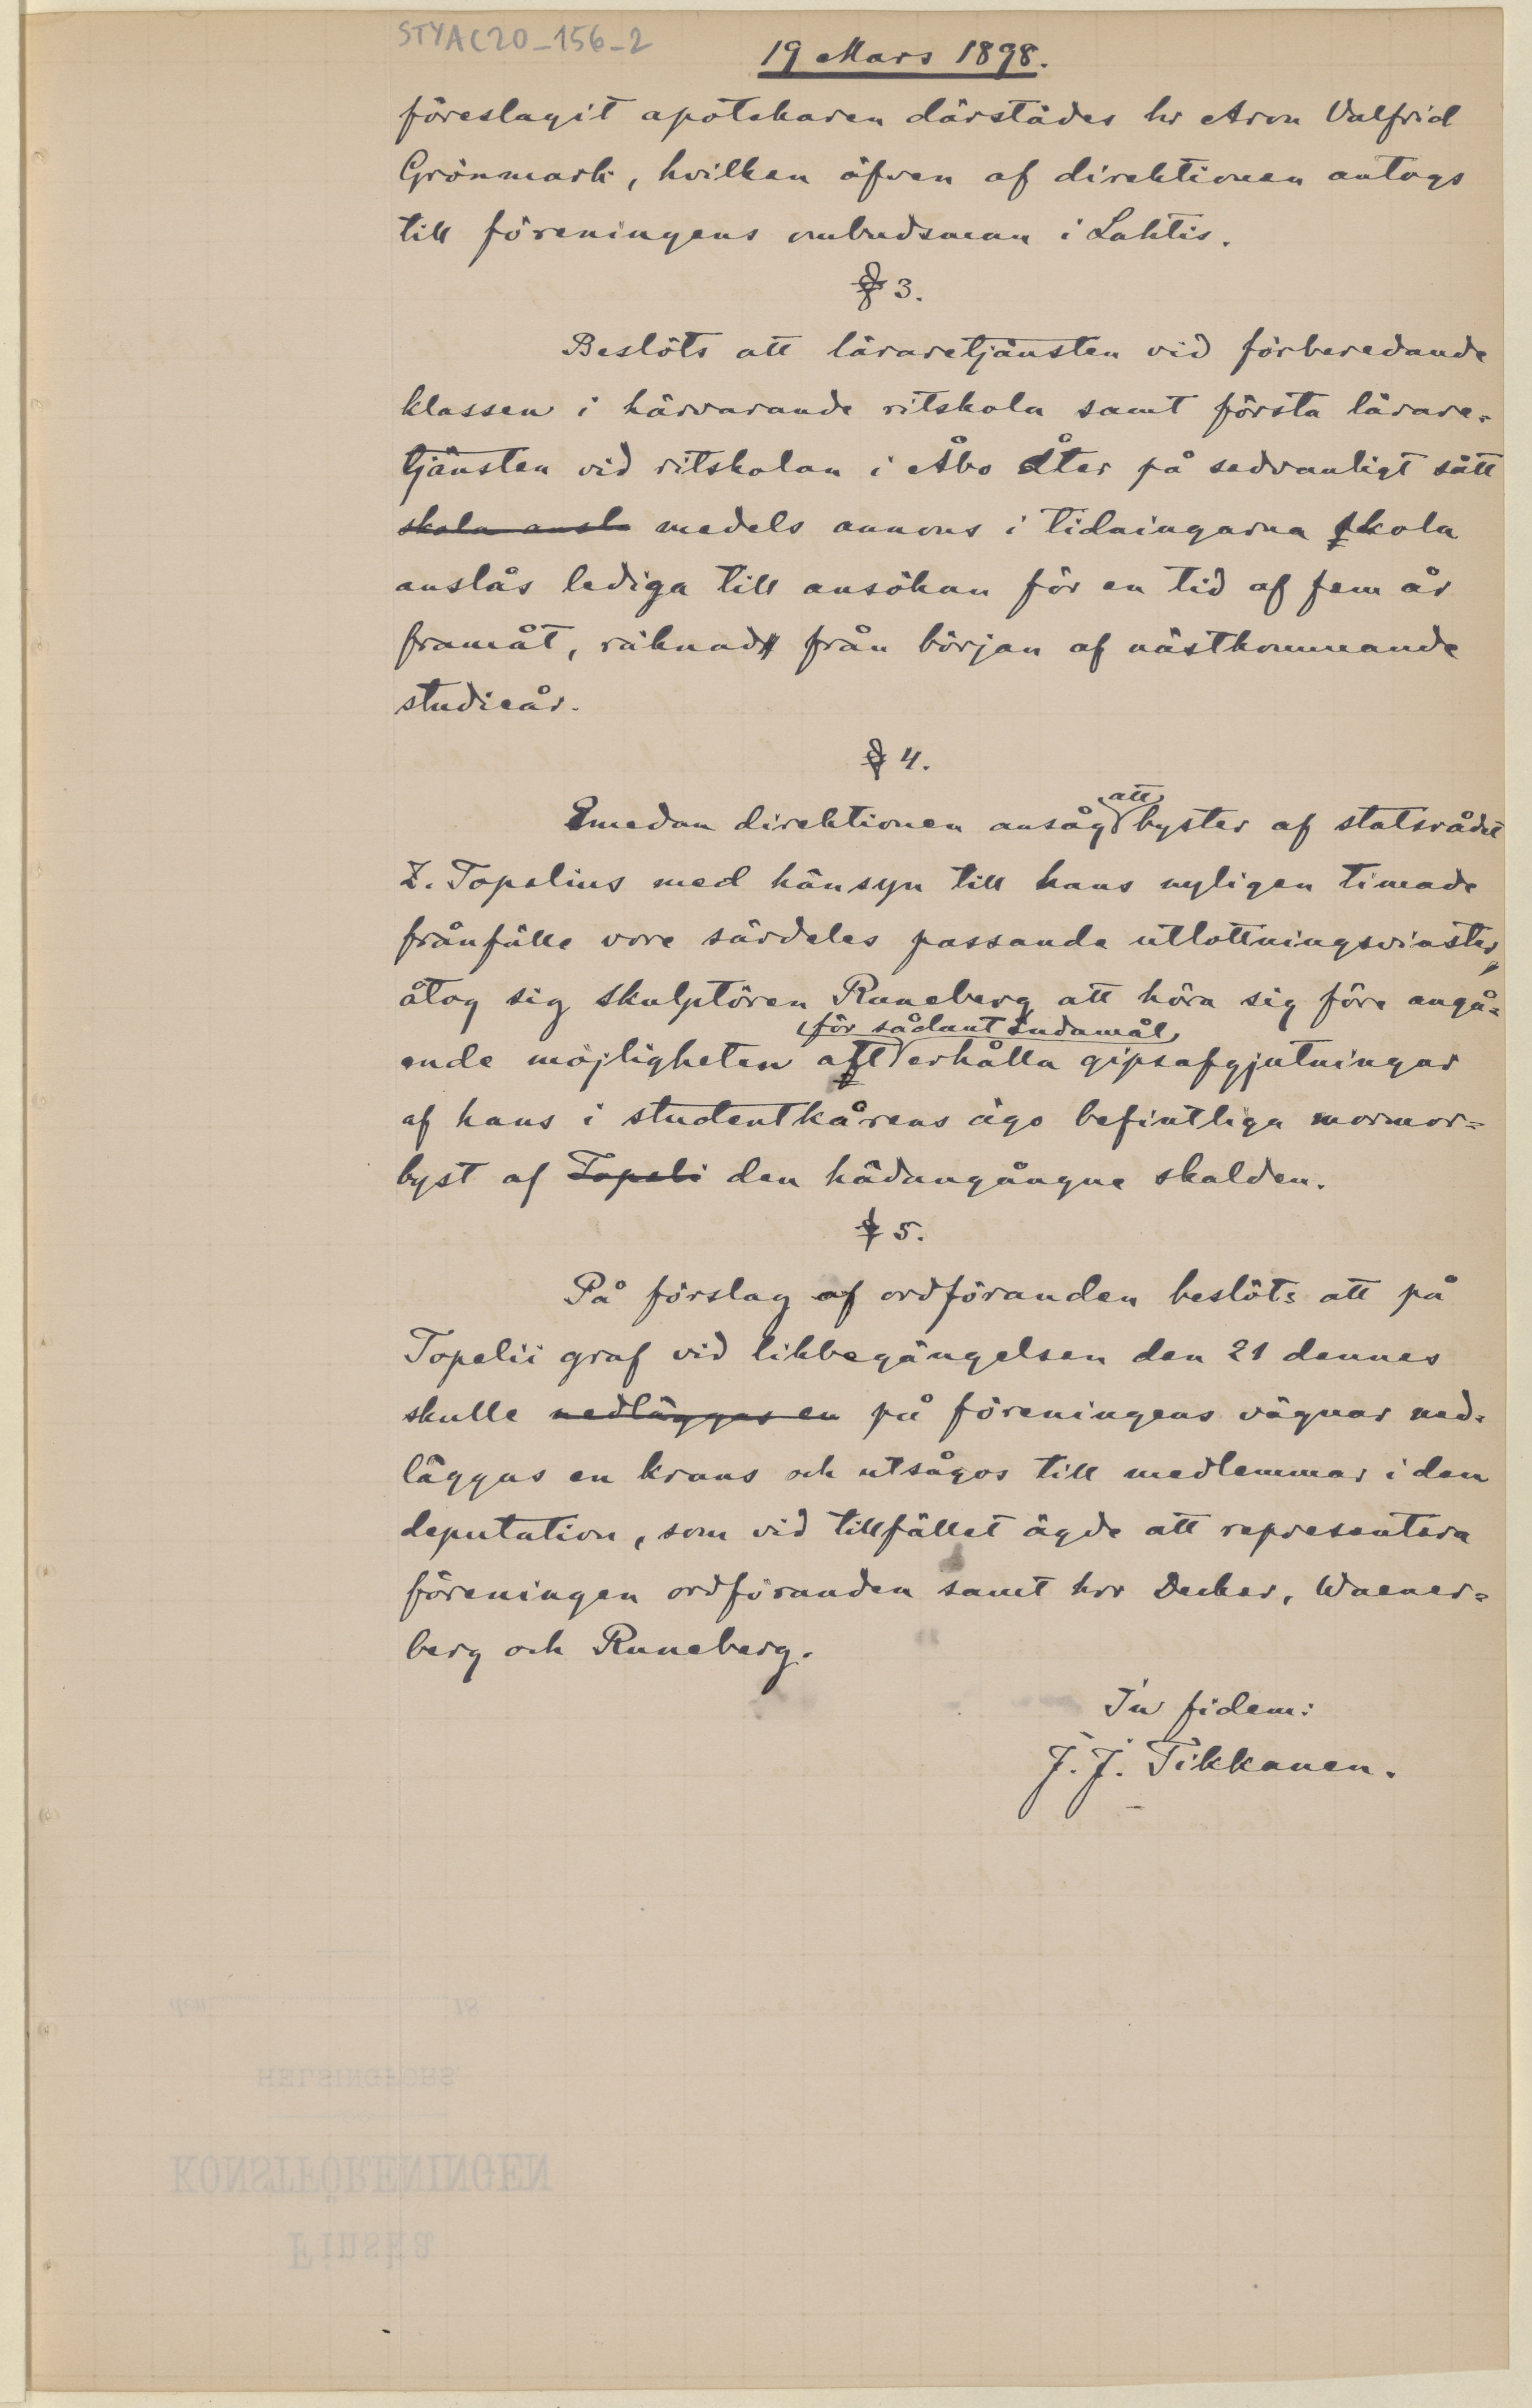 STYAC20_156_2
19 Mars 1898.
föreslagit apotekaren därstädes hr Aron Valfrid
Grönmark, hvilken äfven af direktionen antogs
till föreningens ombudsman i Lahtis.
§ 3.
Beslöts att läraretjänsten vid förberedande
klassen i härvarande ritskola samt första lärare=
tjänsten vid ritskolan i Åbo åter på sedvanligt sätt
skola ansl medels annons i tidningarna skola
anslås lediga till ansökan för en tid af fem år
framåt, räknad från början af nästkommande
studieår.
§ 4.
Emedan direktionen ansåg att byster af statsrådet
Z. Topelius med hänsyn till hans nyligen timade
frånfälle vore särdeles passande utlottningsvinster,
åtog sig skulptören Runeberg att höra sig före angå=
ende möjligheten att för sådant ändamål erhålla gipsafgjutningar
af hans i studentkårens ägo befintliga mormor=
byst af Topeli den hädangångne skalden.
§ 5.
På förslag af ordföranden beslöts att på
Topelii graf vid likbegängelsen den 21 dennes
skulle nedläggas en på föreningens vägnar ned=
läggas en krans och utsågos till medlemmar i den
deputation, som vid tillfället ägde att representera
föreningen ordföranden samt hrr Decker, Waener=
berg och Runeberg.
In fidem:
J. J. Tikkanen.
den 18
HELSINGFORS
KONSTFÖRENINGEN
Finska